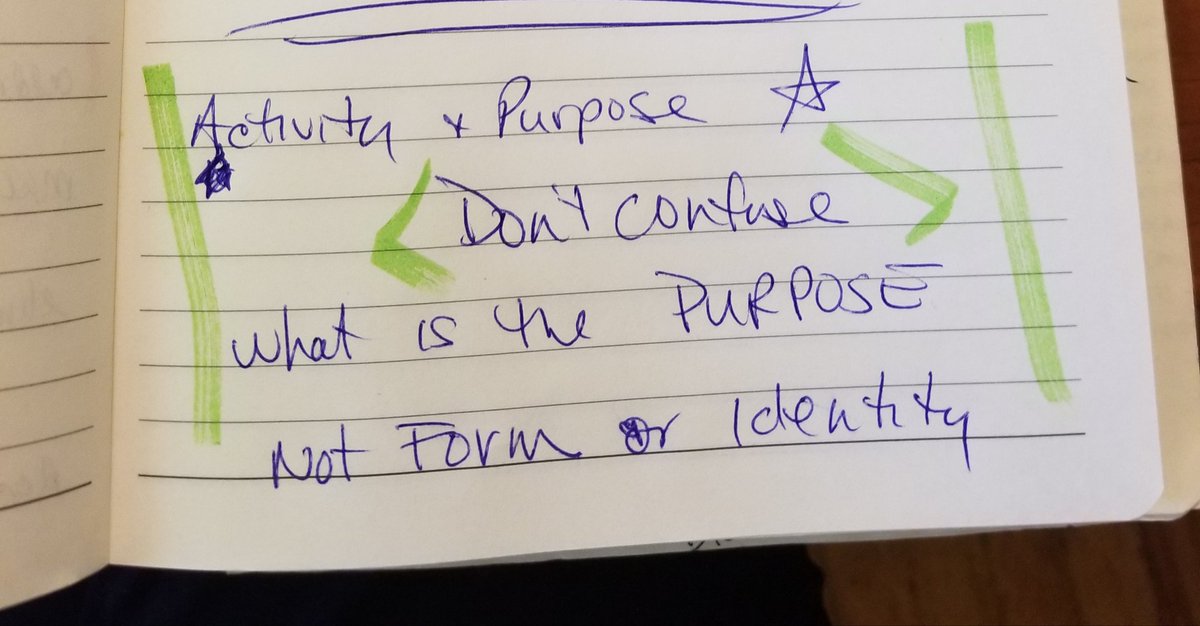 Activity & Purpose ☆
Don't confuse
what is the PURPOSE
Not Form or Identity